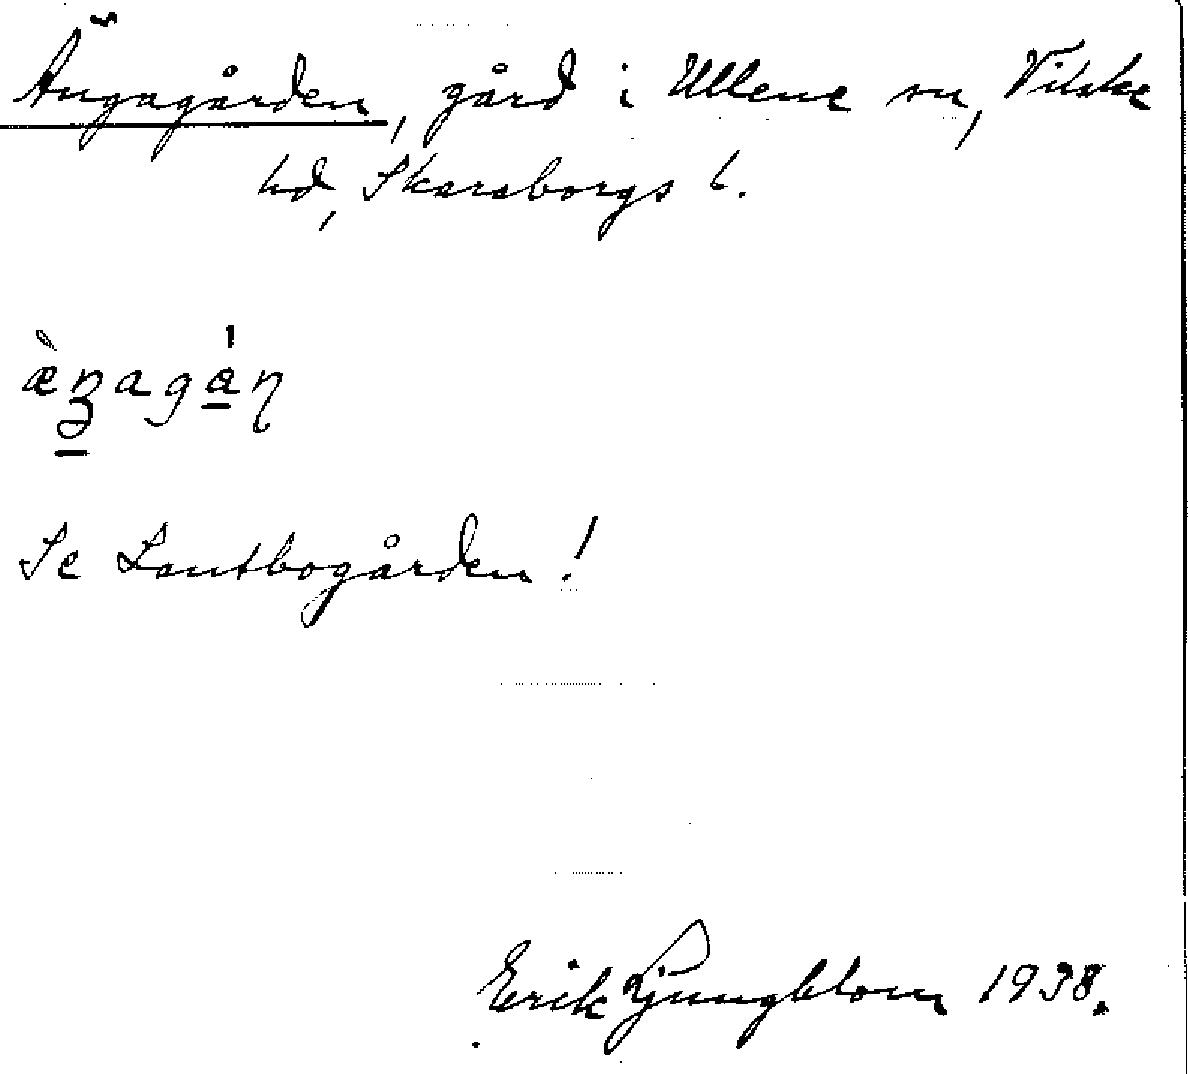 Ängagården, gård i Ullene sn, Vilske
hd, Skaraborgs l.
æ̀ŋagá̱ṇ
Se Lantbogården!
Erik Ljungblom 1938.